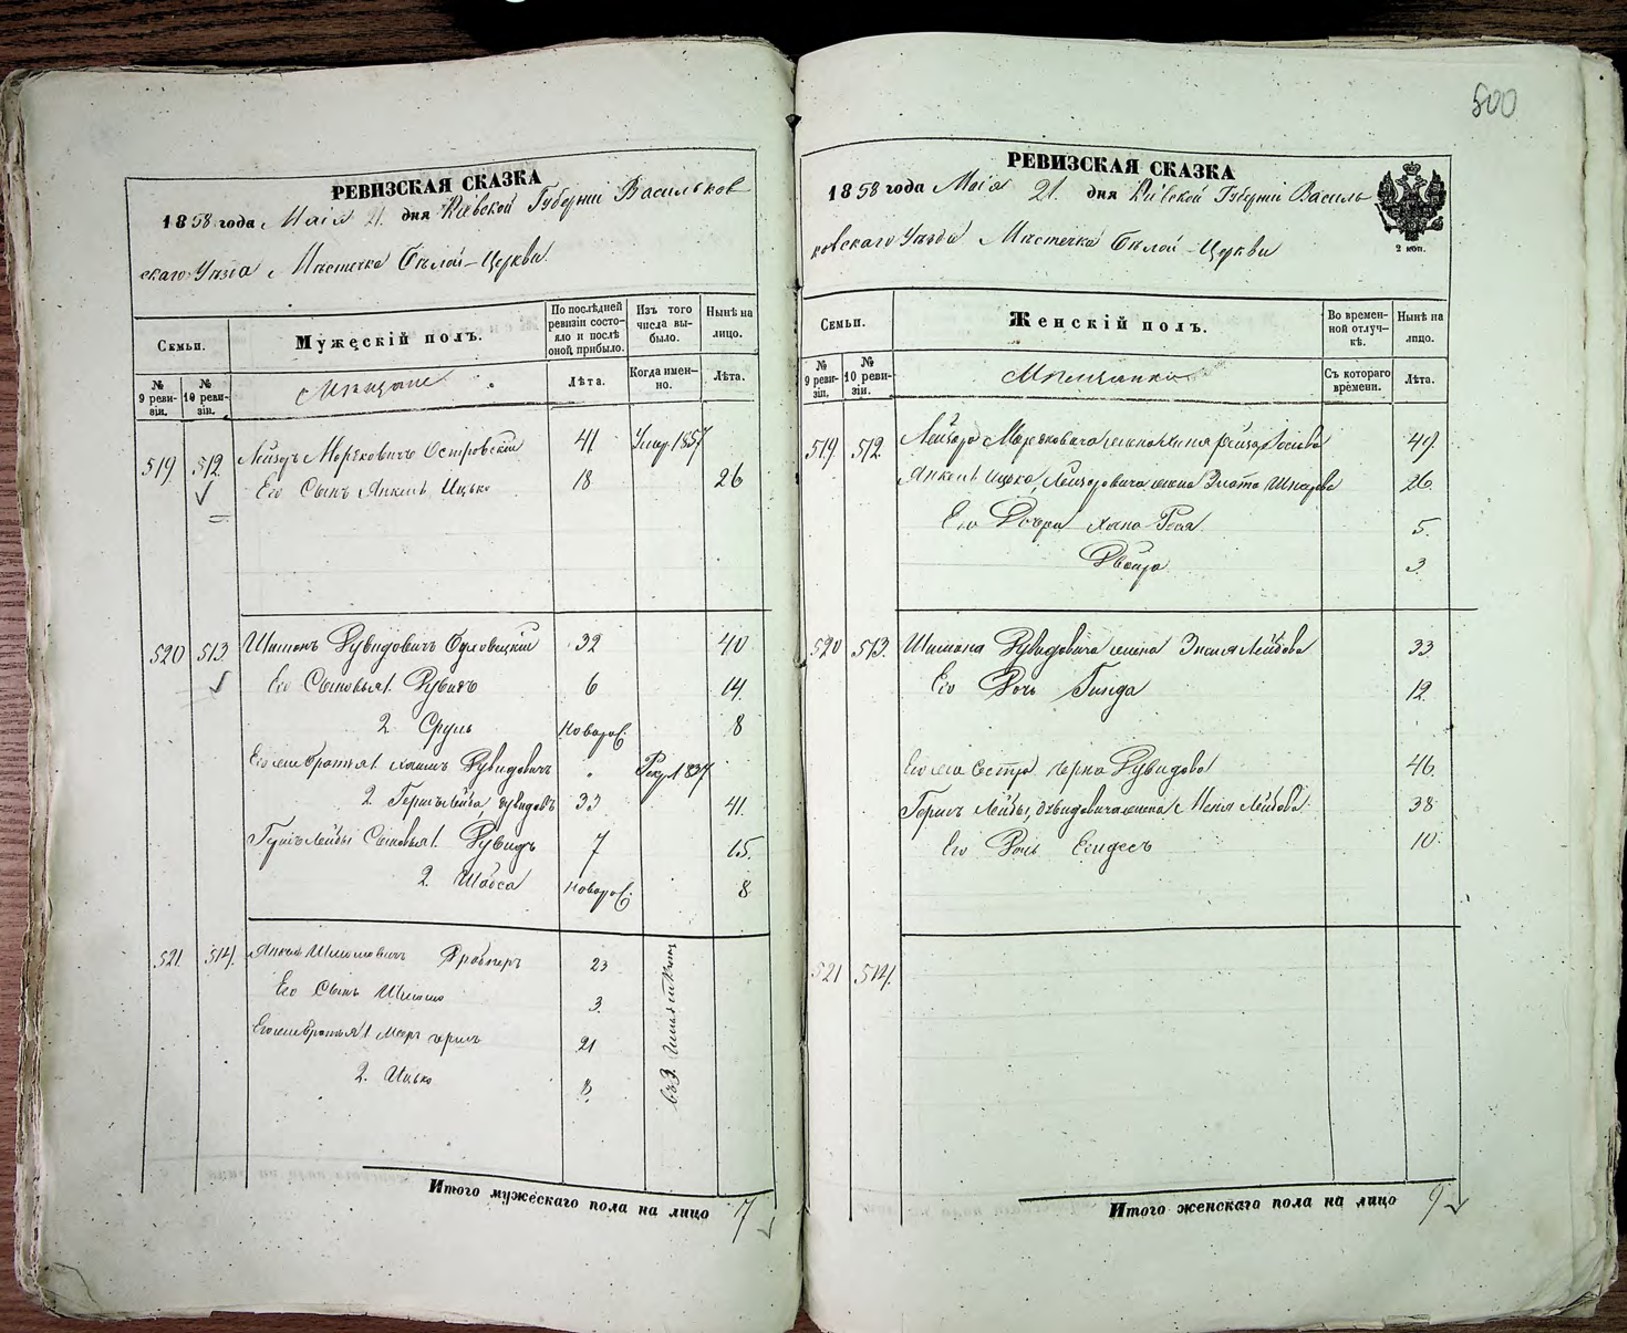 500
РЕВИЗСКАЯ СКАЗКА
1858 года Маія 21. дня Кіевской Губерніи Васильков
скаго Уѣзда Мѣстечка Бѣлой-Церкви
Семьи.
Мужескій полъ.
По послѣдней ревизіи состояло и послѣ оной прибыло.
Изъ того числа выбыло.
Нынѣ на лицо.
№ 9 ревизіи.
№ 10 ревизіи.
Мѣщане
Лѣта.
Когда именно.
Лѣта.
519 512. Лейзоръ Морковичъ Островскій 41 Умер. 1857
Его Сынъ Янкель Ицько 18 26
520 513. Шимонъ Дувидовичъ 32 40
Его Сыновья 1. Дувидъ 6 14.
2. Сруль новорож. 8
Его же братья 1. Хаимъ Дувидовичъ Рек. 1837
2. Гершъ Лейба Дувидов. 33 41.
Гершъ Лейбы Сыновья 1. Дувидъ 7 15.
2. Шабса новорож. 8
521. 514. Янкель Шмулевичъ 23
Его Сынъ 3.
Его же братья 1. Меер Герш 21
2. Ицько
Итого мужескаго пола на лицо 7
РЕВИЗСКАЯ СКАЗКА
1858 года Маія 21. дня Кіевской Губерніи Василь
ковскаго Уѣзда Мѣстечка Бѣлой-Церкви
2 коп.
Семьи.
Женскій полъ.
Во временной отлучкѣ.
Нынѣ на лицо.
№ 9 ревизіи.
№ 10 ревизіи.
Мѣщанки
Съ котораго времени.
Лѣта.
519. 512. Лейзора Морковича жена 49.
Янкель Ицька Лейзоровича жена Злата 26.
Его Дочери Хана Рося 5.
Двойра 3
520 513. Шимона Дувидовича жена Лейбова 33
Его Дочь Гинда 12.
Его же сестра Черна Дувидова 46.
Гершъ Лейбы Дувидовича жена Меня Лейбова 38
Его Дочь 10.
521 514.
Итого женскаго пола на лицо 9